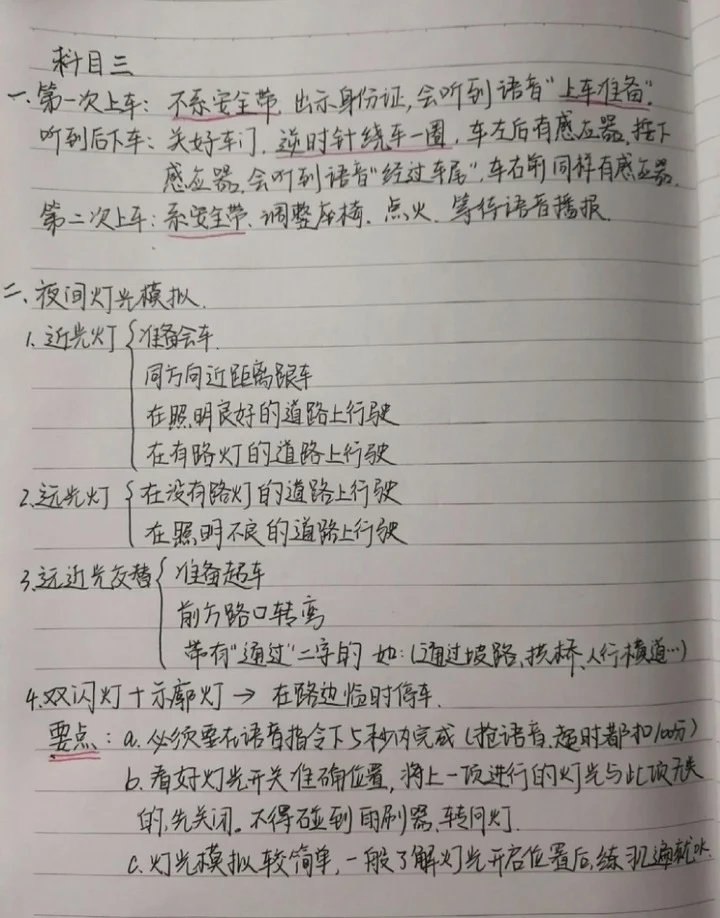 科目三
一、第一次上车：不系安全带，出示身份证，会听到语音“上车准备”.
听到后下车：关好车门，逆时针绕车一圈，车左后有感应器，按下
感应器，会听到语音“经过车尾”，车右前同样有感应器.
第二次上车：系安全带、调整座椅、点火、等待语音播报.
二、夜间灯光模拟.
1.近光灯{准备会车.
同方向近距离跟车
在照明良好的道路上行驶
在有路灯的道路上行驶
2.远光灯{在没有路灯的道路上行驶
在照明不良的道路上行驶
3.远近光交替{准备超车
前方路口转弯
带有“通过”二字的 如：(通过坡路、拱桥、人行横道…)
4.双闪灯+示廓灯→在路边临时停车.
要点：a.必须要在语音指令下5秒内完成(抢语音.超时都扣100分)
b.看好灯光开关准确位置，将上一项进行的灯光与此项无关
的，先关闭。不得碰到雨刷器、转向灯.
c.灯光模拟较简单，一般了解灯光开启位置后，练习几遍就OK.